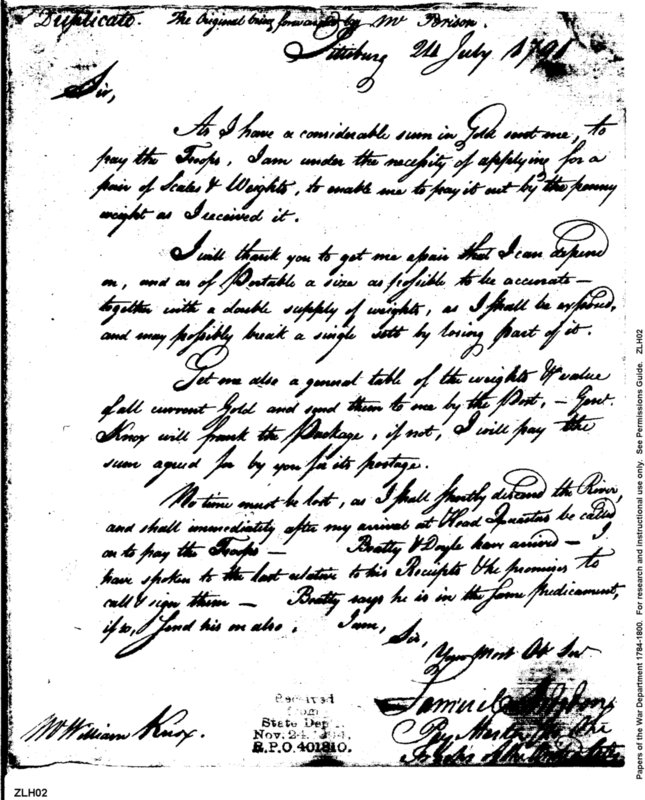 Duplicate. The Original being forwarded by Mr
Pittsburg 24 July 1791
Sir,
As I have a considerable sum in Gold sent me, to
pay the Troops, I am under the necessity of applying for a
pair of Scales & Weights, to enable me to pay it out by the penny
weight as I received it.
I will thank you to get me a pair that I can depend
on, and as of Portable a size as possible to be accurate —
together with a double supply of weights, as I shall be exposed,
and may possibly break a single sett by losing part of it.
Get me also a general table of the weights & value
of all current Gold and send them to me by the Post, — Genl.
Knox will frank the Package, if not, I will pay the
sum agreed for by you for its postage.
No time must be lost, as I shall shortly descend the River,
and shall immediately after my arrival at Head Quarters be called
on to pay the Troops — Beatty & Doyle have arrived — I
have spoken to the last relative to his Receipts & he promises to
call & sign them — Beatty says he is in the same predicament,
if so, send his on also. I am,
Sir,
Your Most Ob Ser
Samuel
Pay Master to the
of the United States
Mr William Knox.
Received
from
State Dep
Nov. 24,
R.P.O. 401810.
ZLH02
Papers of the War Department 1784-1800. For research and instructional use only. See Permissions Guide. ZLH02